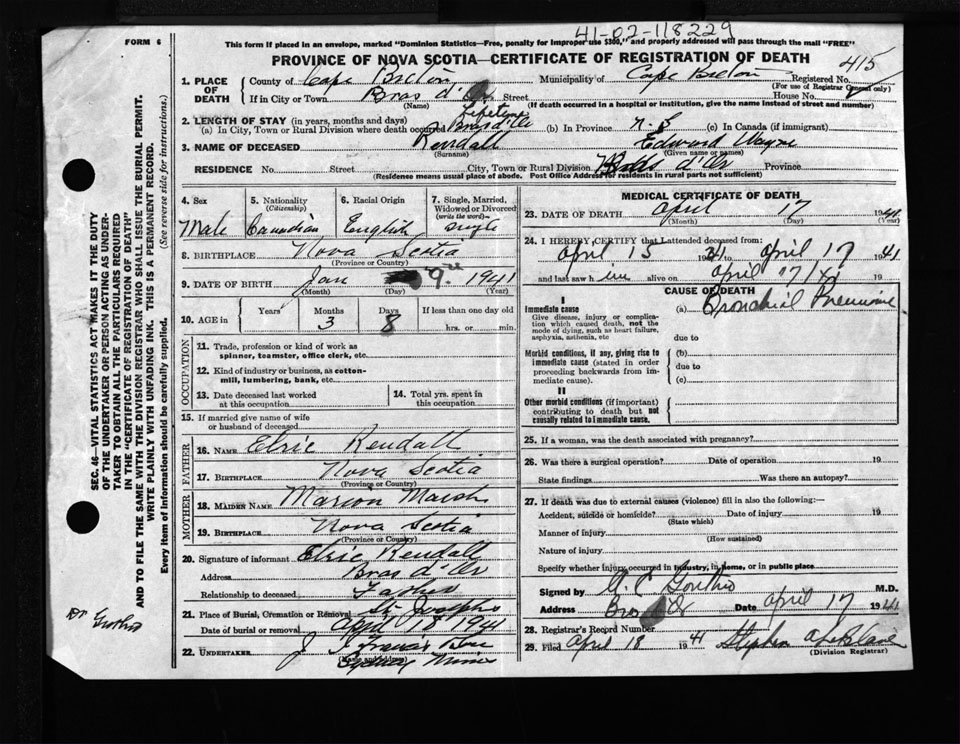 41-02-118229
FORM 6
This form if placed in an envelope, marked "Dominion Statistics—Free, penalty for improper use $300," and properly addressed will pass through the mail "FREE"
PROVINCE OF NOVA SCOTIA—CERTIFICATE OF REGISTRATION OF DEATH 415
1. PLACE OF DEATH County of Cape Breton Municipality of Cape Breton Registered No.
(For use of Registrar General only)
If in City or Town Bras d'Or Street House No.
(Name) (If death occurred in a hospital or institution, give the name instead of street and number)
2. LENGTH OF STAY (in years, months and days) Lifetime
(a) In City, Town or Rural Division where death occurred Bras d'Or (b) In Province N.S (c) In Canada (if immigrant)
3. NAME OF DECEASED Rendall Edward Wayne
(Surname) (Given name or names)
RESIDENCE No. Street City, Town or Rural Division Bras d'Or Province
(Residence means usual place of abode. Post Office Address for residents in rural parts not sufficient)
4. Sex Male
5. Nationality (Citizenship) Canadian
6. Racial Origin English
7. Single, Married, Widowed or Divorced (write the word) Single
8. BIRTHPLACE Nova Scotia
(Province or Country)
9. DATE OF BIRTH Jan 9" 1941
(Month) (Day) (Year)
10. AGE in Years Months 3 Days 8 If less than one day old
hrs. or min.
OCCUPATION
11. Trade, profession or kind of work as spinner, teamster, office clerk, etc.
12. Kind of industry or business, as cotton-mill, lumbering, bank, etc.
13. Date deceased last worked at this occupation
14. Total yrs. spent in this occupation
15. If married give name of wife or husband of deceased
FATHER
16. NAME Elric Rendall
17. BIRTHPLACE Nova Scotia
(Province or Country)
MOTHER
18. MAIDEN NAME Marion Marsh
19. BIRTHPLACE Nova Scotia
(Province or Country)
20. Signature of informant Elric Rendall
Address Bras d'Or
Relationship to deceased Father
21. Place of Burial, Cremation or Removal St. Josephs
Date of burial or removal April 18 1941
22. UNDERTAKER J Francis Son
(Name and address)
Sydney Mines
MEDICAL CERTIFICATE OF DEATH
23. DATE OF DEATH April 17 1941
(Month) (Day)
24. I HEREBY CERTIFY that I attended deceased from:
April 15 1941 to April 17 1941
and last saw h im alive on April 17/41 19
CAUSE OF DEATH
I
Immediate cause (a) Bronchial Pneumonia
Give disease, injury or complication which caused death, not the mode of dying, such as heart failure, asphyxia, asthenia, etc
due to
Morbid conditions, if any, giving rise to immediate cause (stated in order proceeding backwards from immediate cause).
(b)
due to
(c)
II
Other morbid conditions (if important) contributing to death but not causally related to immediate cause.
25. If a woman, was the death associated with pregnancy?
26. Was there a surgical operation? Date of operation 19
State findings Was there an autopsy?
27. If death was due to external causes (violence) fill in also the following:—
Accident, suicide or homicide? Date of injury 19
(State which)
Manner of injury
(How sustained)
Nature of injury
Specify whether injury occurred in industry, in home, or in public place
Signed by M.D.
Address Bras d'Or Date April 17 1941
28. Registrar's Record Number
29. Filed April 18 1941 Stephen
(Division Registrar)
SEC. 46—VITAL STATISTICS ACT MAKES IT THE DUTY
OF THE UNDERTAKER OR PERSON ACTING AS UNDER-
TAKER TO OBTAIN ALL THE PARTICULARS REQUIRED
IN THE "CERTIFICATE OF REGISTRATION OF DEATH"
AND TO FILE THE SAME WITH THE DIVISION REGISTRAR WHO SHALL ISSUE THE BURIAL PERMIT.
WRITE PLAINLY WITH UNFADING INK. THIS IS A PERMANENT RECORD.
Every item of information should be carefully supplied. (See reverse side for instructions.)
Dr